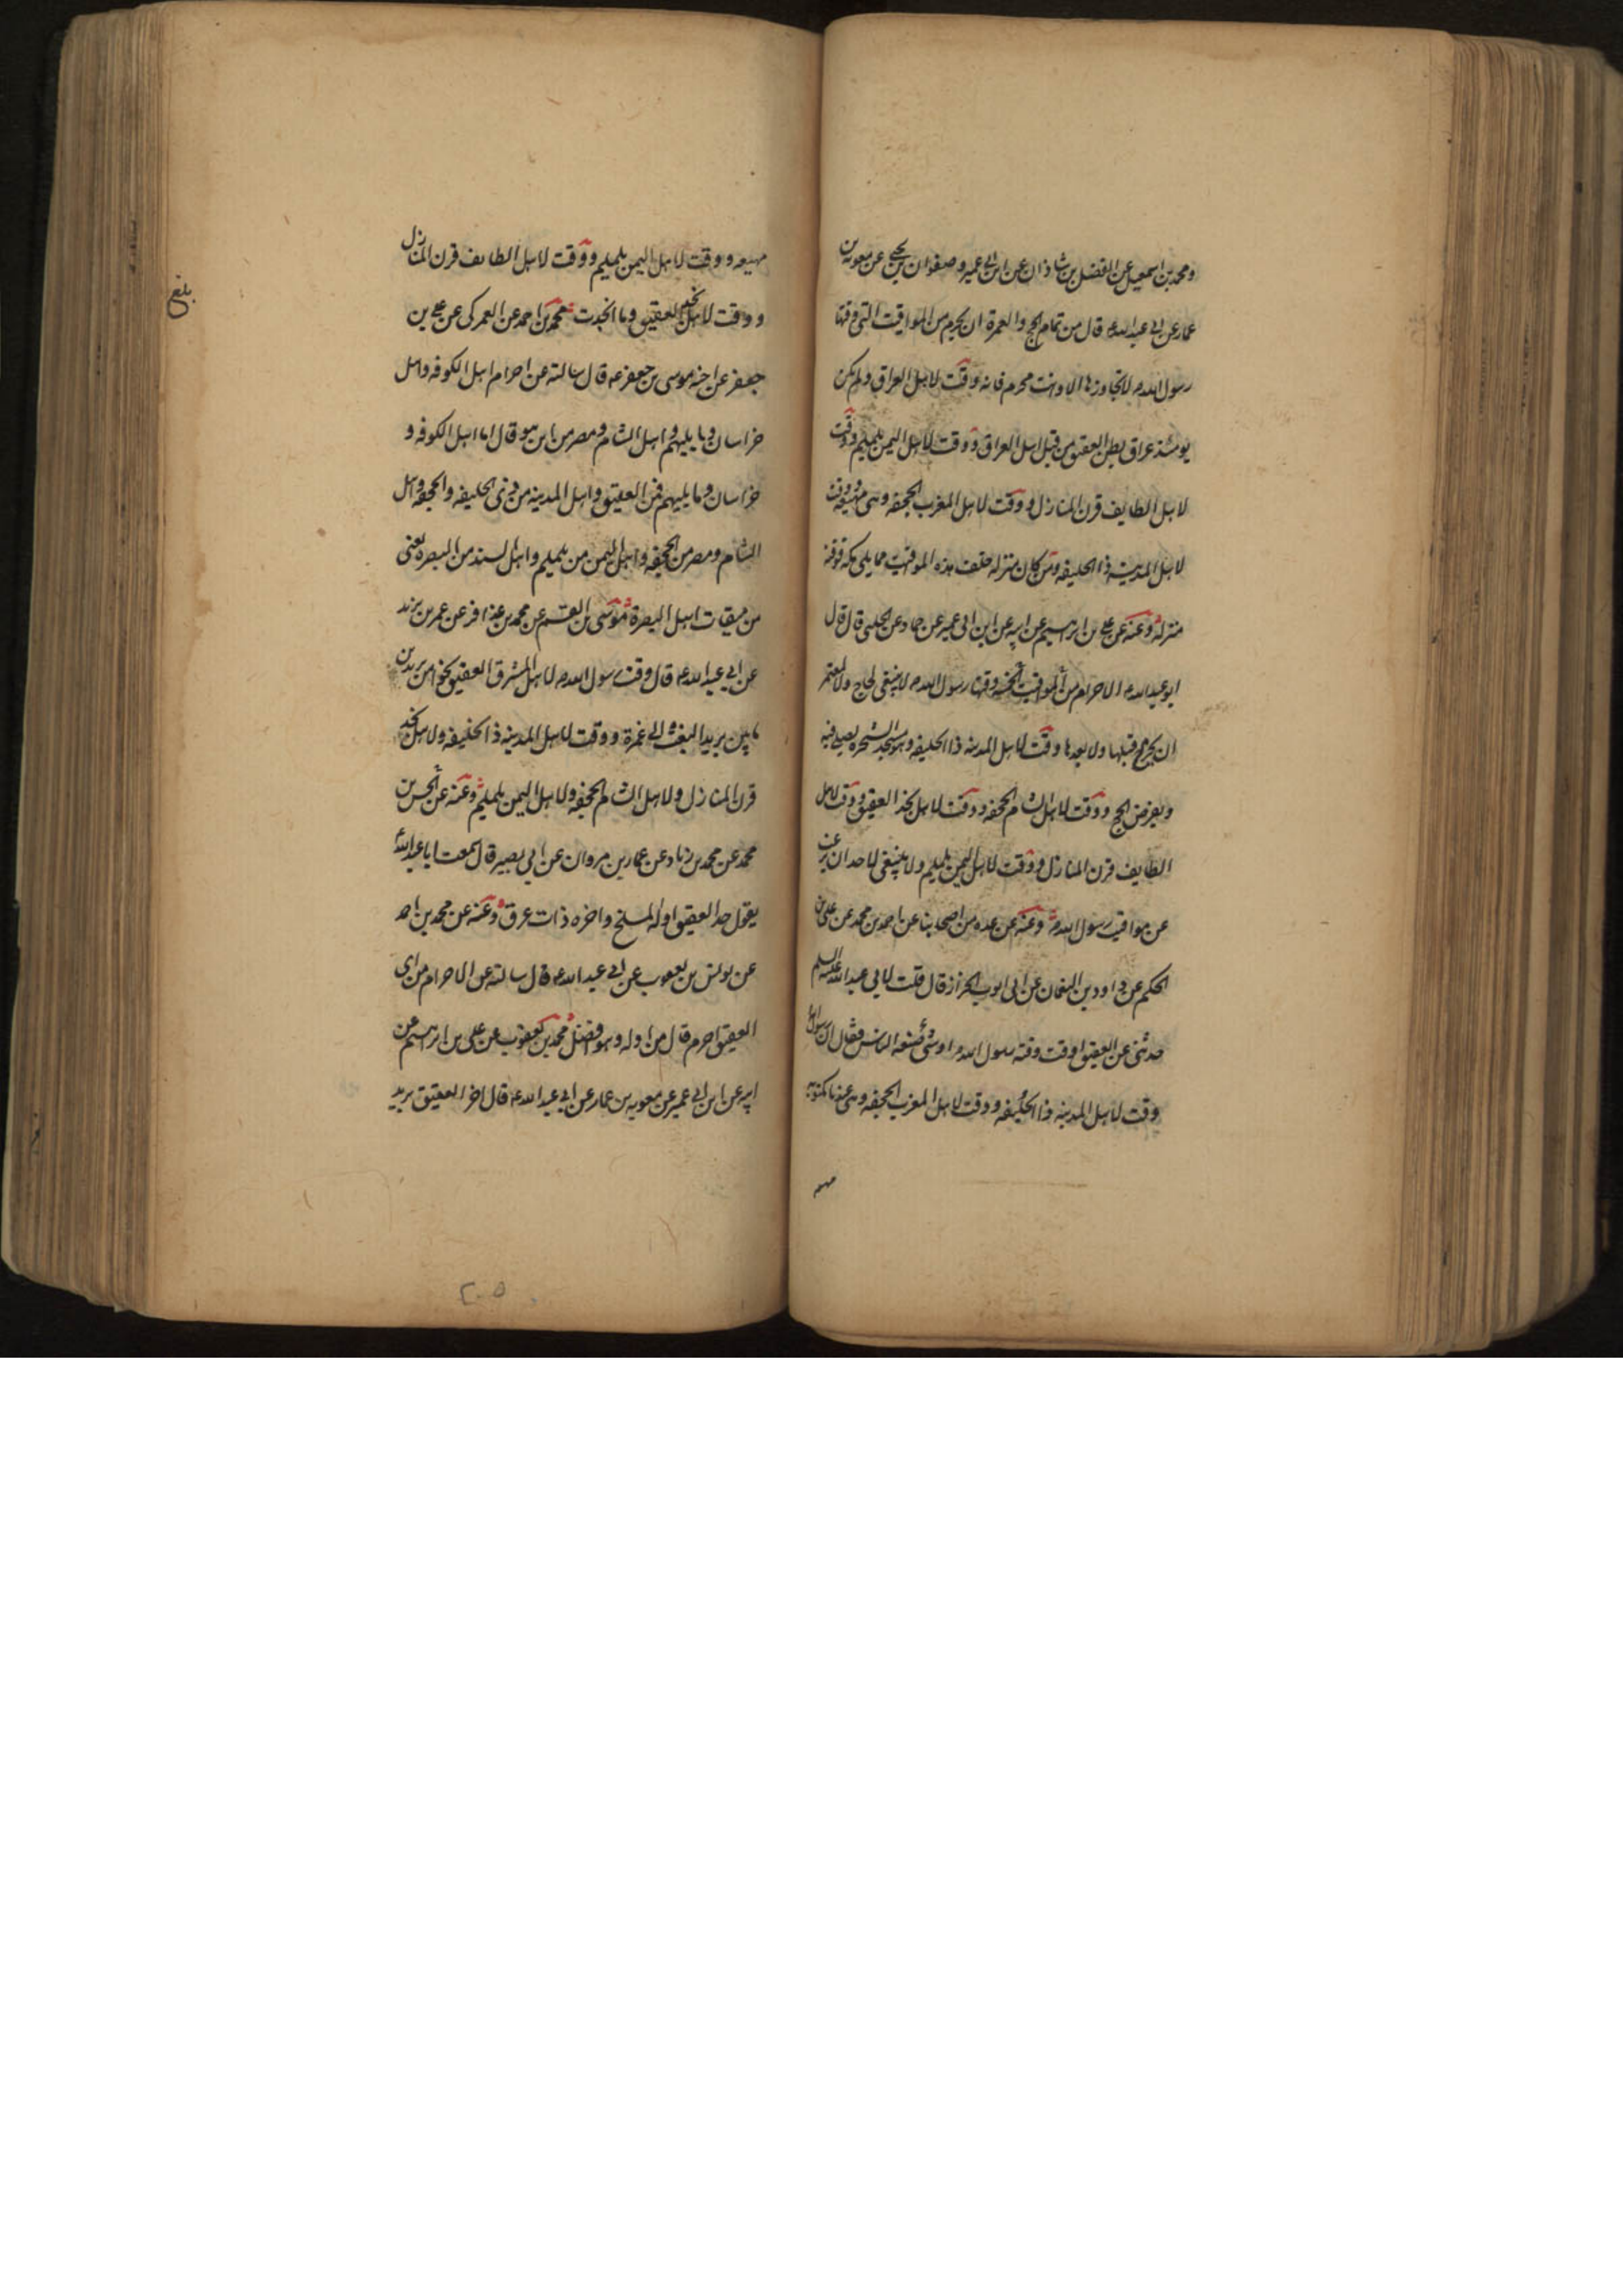 ومحمد بن اسمعيل عن الفضل بن شاذان عن ابن ابي عمير وصفوان بن يحيى عن معوية بن
عمار عن ابي عبد الله ع قال من تمام الحج والعمرة ان يحرم من المواقيت التي وقتها
رسول الله ص لا تجاوزها الا وانت محرم فانه وقت لاهل العراق ولم يكن
يومئذ عراق بطن العقيق من قبل اهل العراق ووقت لاهل اليمن يلملم ووقت
لاهل الطايف قرن المنازل ووقت لاهل المغرب الجحفه وهي مهيعه ووقت
لاهل المدينة ذا الحليفه ومن كان منزله خلف هذه المواقيت مما يلي مكه فوقته
منزله وعنه عن علي بن ابرهيم عن ابيه عن ابن ابي عمير عن حماد عن الحلبي قال قال
ابو عبد الله ع الاحرام من المواقيت الخمسه وقتها رسول الله ص لا ينبغي لحاج ولا لمعتمر
ان يحرم قبلها ولا بعدها وقت لاهل المدينه ذا الحليفه وهو مسجد الشجره يصلي فيه
ويفرض الحج ووقت لاهل الشام الجحفه ووقت لاهل نجد العقيق ووقت لاهل
الطايف قرن المنازل ووقت لاهل اليمن يلملم ولا ينبغي لاحد ان يرغب
عن مواقيت رسول الله ص وعنه عن عده من اصحابنا عن احمد بن محمد عن علي بن
الحكم عن داود بن النعمان عن ابي ايوب الخراز قال قلت لابي عبد الله عليه السلم
حدثني عن العقيق اوقت وقته رسول الله ص او شئ صنعه الناس فقال ان رسول الله
وقت لاهل المدينه ذا الحليفه ووقت لاهل المغرب الجحفه وهي عندنا مكتوبه
مهيعه
مهيعه ووقت لاهل اليمن يلملم ووقت لاهل الطايف قرن المنازل
ووقت لاهل نجد العقيق وما انجدت محمد بن احمد عن العمركي عن علي بن
جعفر عن اخيه موسى بن جعفر ع قال سالته عن احرام اهل الكوفه واهل
خراسان وما يليهم واهل الشام ومصر من اين هو قال اما اهل الكوفه و
خراسان وما يليهم فمن العقيق واهل المدينه من ذي الحليفه والجحفه واهل
الشام ومصر من الجحفه واهل اليمن من يلملم واهل السند من البصره يعني
من ميقات اهل البصرة موسى بن القسم عن محمد بن عذافر عن عمر بن يزيد
عن ابي عبد الله ع قال وقت رسول الله ص لاهل المشرق العقيق نحوا من بريدين
ما بين بريد البغث الى غمرة ووقت لاهل المدينه ذا الحليفه ولاهل نجد
قرن المنازل ولاهل الشام الجحفه ولاهل اليمن يلملم وعنه عن الحسن بن
محمد عن محمد بن زياد عن عمار بن مروان عن ابي بصير قال سمعت ابا عبد الله
يقول حد العقيق اوله المسلخ واخره ذات عرق وعنه عن محمد بن احمد
عن يونس بن يعقوب عن ابي عبد الله ع قال سالته عن الاحرام من اي
العقيق احرم قال من اوله وهو افضل محمد بن يعقوب عن علي بن ابرهيم عن
ابيه عن ابن ابي عمير عن معويه بن عمار عن ابي عبد الله ع قال اخر العقيق بريد
بلغ
٢٠٥